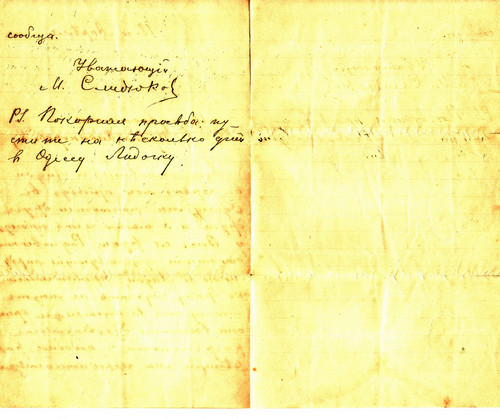 сообща.
Уважающій
М. Слидюков
PS. Покорная просьба пу
стить на нѣсколько дней
в Одессу Лидочку.